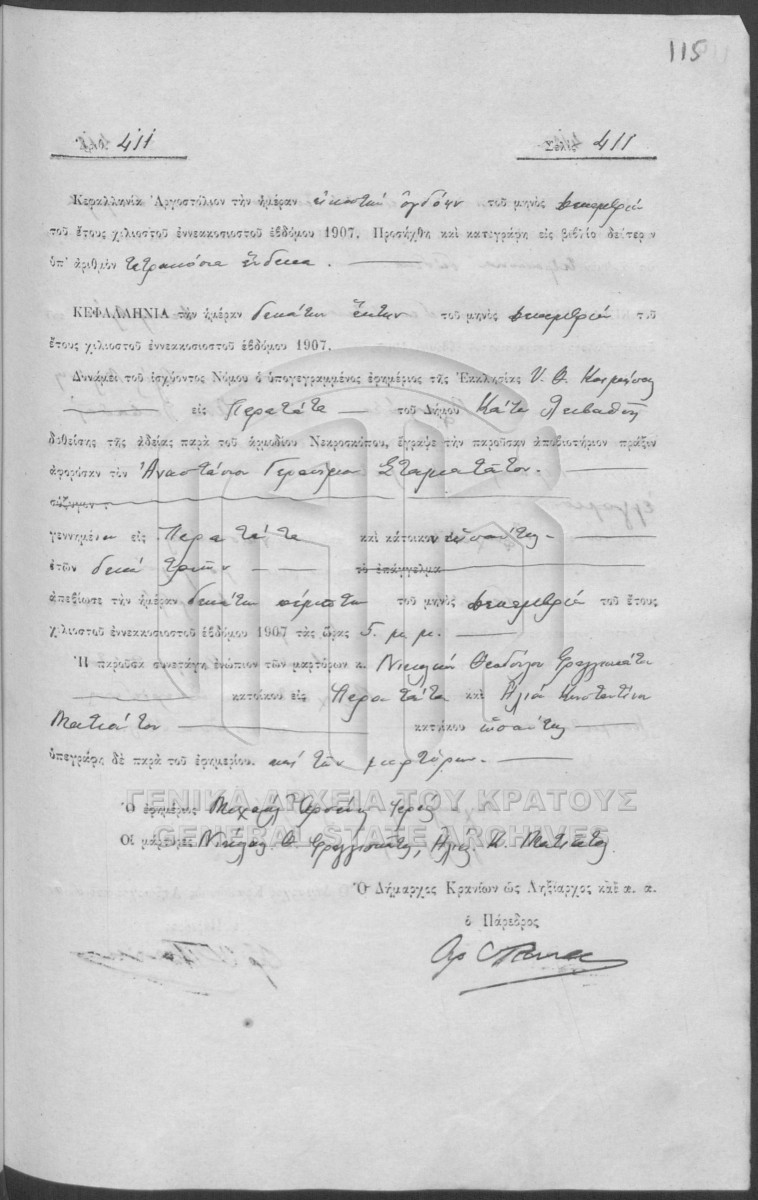 115
411
Σελὶς 411
Κεφαλληνία Ἀργοστόλιον τὴν ἡμέραν εἰκοστὴν ὀγδόην τοῦ μηνὸς Δεκεμβρίου
τοῦ ἔτους χιλιοστοῦ ἐννεακοσιοστοῦ ἑβδόμου 1907. Προσήχθη καὶ κατεγράφη εἰς βιβλίο δεύτερον
ὑπ' ἀριθμὸν τετρακόσια ἕνδεκα.
ΚΕΦΑΛΛΗΝΙΑ τὴν ἡμέραν δεκάτην ἕκτην τοῦ μηνὸς Δεκεμβρίου τοῦ
ἔτους χιλιοστοῦ ἐννεακοσιοστοῦ ἑβδόμου 1907.
Δυνάμει τοῦ ἰσχύοντος Νόμου ὁ ὑπογεγραμμένος ἐφημέριος τῆς Ἐκκλησίας Υ. Θ.
εἰς Περατάτα τοῦ Δήμου Κάτω Λειβαθοῦς
δοθείσης τῆς ἀδείας παρὰ τοῦ ἁρμοδίου Νεκροσκόπου, ἔγραψε τὴν παροῦσαν ἀποβιοτήριον πρᾶξιν
ἀφορῶσαν τὸν Ἀναστάσιον Γερασίμου Σταματάτον.
σύζυγον
γεννημένον εἰς Περατάτα καὶ κάτοικον ὡσαύτως
ἐτῶν δεκατριῶν τὸ ἐπάγγελμα
ἀπεβίωσε τὴν ἡμέραν δεκάτην πέμπτην τοῦ μηνὸς Δεκεμβρίου τοῦ ἔτους
χιλιοστοῦ ἐννεακοσιοστοῦ ἑβδόμου 1907 τὰς ὥρας 5. μ. μ.
Ἡ παροῦσα συνετάγη ἐνώπιον τῶν μαρτύρων κ. Νικολάου Θεοδώρου Φραγγισκάτου
κατοίκου εἰς Περατάτα καὶ Ἠλία Κωνσταντίνου
Ματιάτου κατοίκου ὡσαύτως
ὑπεγράφη δὲ παρὰ τοῦ ἐφημερίου. καὶ τῶν μαρτύρων.
ΓΕΝΙΚΑ ΑΡΧΕΙΑ ΤΟΥ ΚΡΑΤΟΥΣ
Ὁ ἐφημέριος Μιχαὴλ ἱερεὺς
GENERAL STATE ARCHIVES
Οἱ μάρτυρες Νικόλαος Θ. Φραγγισκάτος, Ἠλίας Κ. Ματιάτος
Ὁ Δήμαρχος Κρανίων ὡς Ληξίαρχος καὶ ἀ. ἀ.
ὁ Πάρεδρος